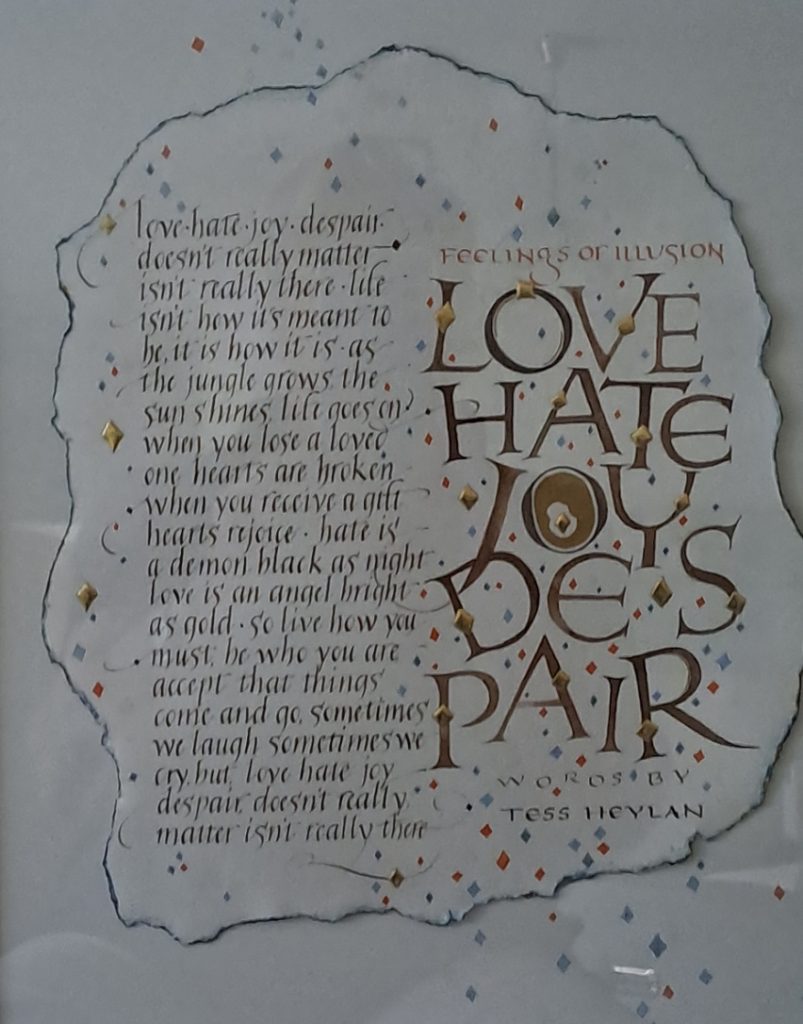 love · hate · joy · despair ·
doesn't really matter
isn't really there · life
isn't how it's meant to
be, it is how it is · as
the jungle grows the
sun shines, life goes on
when you lose a loved
one hearts are broken
when you receive a gift
hearts rejoice · hate is
a demon black as night
love is an angel bright
as gold · so live how you
must, be who you are
accept that things
come and go, sometimes
we laugh sometimes we
cry, but, love hate joy
despair, doesn't really
matter isn't really there
FEELINGS OF ILLUSION
LOVE
HATE
JOY
DES
PAIR
WORDS BY
TESS HEYLAN